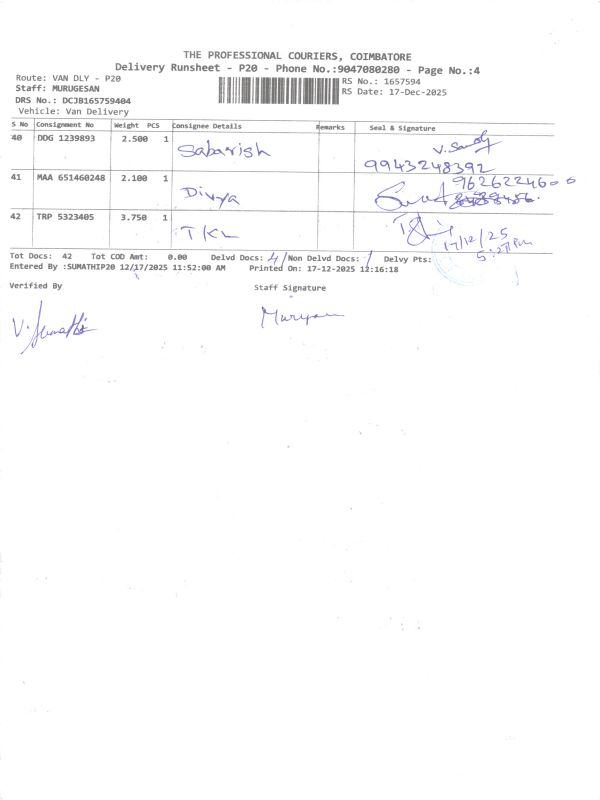 THE PROFESSIONAL COURIERS, COIMBATORE
Delivery Runsheet - P20 - Phone No.:9047080280 - Page No.:4
Route: VAN DLY - P20
RS No.: 1657594
Staff: MURUGESAN
RS Date: 17-Dec-2025
DRS No.: DCJB165759404
Vehicle: Van Delivery
S No Consignment No Weight PCS Consignee Details Remarks Seal & Signature
40 DDG 1239893 2.500 1 Sabarish
9943248392
41 MAA 651460248 2.100 1 Divya 9626224600
42 TRP 5323405 3.750 1 TKL
17/12/25
5:27Pm
Tot Docs: 42 Tot COD Amt: 0.00 Delvd Docs: 41 Non Delvd Docs: 1 Delvy Pts:
Entered By :SUMATHIP20 12/17/2025 11:52:00 AM Printed On: 17-12-2025 12:16:18
Verified By Staff Signature
V. Sumathi